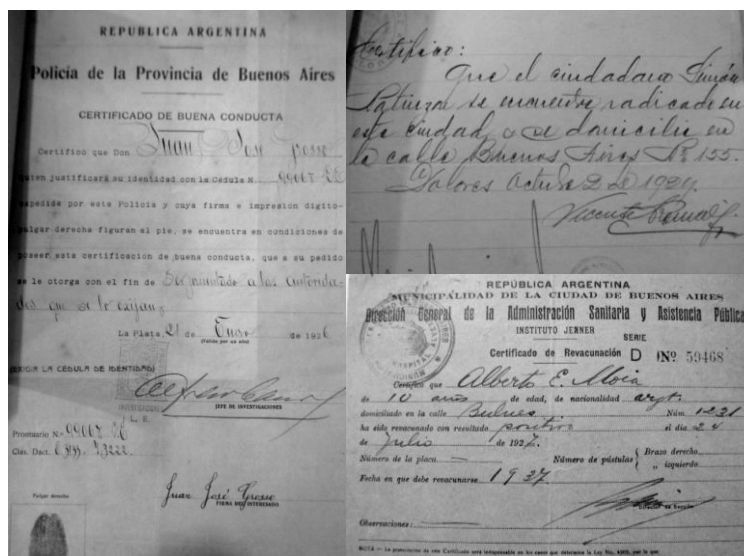 REPUBLICA ARGENTINA
Policía de la Provincia de Buenos Aires
CERTIFICADO DE BUENA CONDUCTA
Certifico que Don Juan José
quien justificará su identidad con la Cédula N. 99007
expedida por este Policía y cuya firma e impresión digito-
pulgar derecha figuran al pie, se encuentra en condiciones de
poseer esta certificación de buena conducta, que a su pedido
se le otorga con el fin de Ser presentado a las autorida-
des que se lo exijan.
La Plata, 21 de Enero de 1926
(Válido por un año)
EXIGIR LA CÉDULA DE IDENTIDAD
JEFE DE INVESTIGACIONES
Prontuario N.º 99007
Clas. Dact.
Pulgar derecho
Juan José Grosso
FIRMA DEL INTERESADO
Certifico:
Que el ciudadano Simón
se encuentra radicado en
esta ciudad, y se domicilia en
la calle Buenos Aires Nº 155.
Dolores Octubre 2 de 1924
Vicente
REPÚBLICA ARGENTINA
MUNICIPALIDAD DE LA CIUDAD DE BUENOS AIRES
Dirección General de la Administración Sanitaria y Asistencia Pública
INSTITUTO JENNER
SERIE
Certificado de Revacunación D Nº 59468
Certifico que Alberto E. Moia
de 10 años de edad, de nacionalidad argt.
domiciliado en la calle Bulnes Núm. 1231
ha sido revacunado con resultado positivo el día 24
de Julio de 1927.
Número de la placa — Número de pústulas Brazo derecho
„ izquierdo
Fecha en que debe revacunarse 1937
Director de Sección
Observaciones: